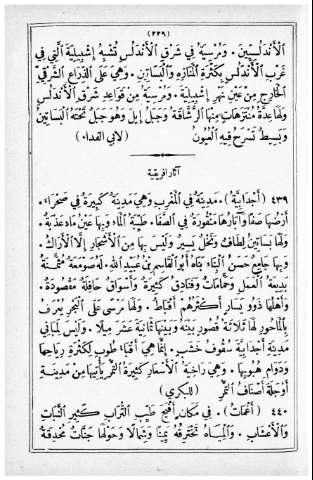 (٢٢٩)
ٱلْأَنْدَلُسِيِّينَ . وَمُرْسِيَةُ فِي شَرْقِ ٱلْأَنْدَلُسِ تُشْبِهُ إِشْبِيلِيَةَ ٱلَّتِي فِي
غَرْبِ ٱلْأَنْدَلُسِ بِكَثْرَةِ ٱلْمَنَازِهِ وَٱلْبَسَاتِينِ . وَهِيَ عَلَى ٱلذِّرَاعِ ٱلشَّرْقِيِّ
ٱلْخَارِجِ مِنْ عَيْنِ نَهْرِ إِشْبِيلِيَةَ . وَمُرْسِيَةُ مِنْ قَوَاعِدِ شَرْقِ ٱلْأَنْدَلُسِ
وَلَهَا عِدَّةُ مُنْتَزَهَاتٍ مِنْهَا ٱلرَّشَاقَةُ وَجَبَلُ إِيلَ وَهُوَ جَبَلٌ تَحْتَهُ ٱلْبَسَاتِينُ
وَبَسِيطٌ تَسْرَحُ فِيهِ ٱلْعُيُونُ (لابي الفداء)
آثار افريقية
٤٣٩ (أَجْدَابِيَةُ) . مَدِينَةٌ فِي ٱلْمَغْرِبِ وَهِيَ مَدِينَةٌ كَبِيرَةٌ فِي صَحْرَاءَ .
أَرْضُهَا صَفًا وَآبَارُهَا مَنْقُورَةٌ فِي ٱلصَّفَا . طَيِّبَةُ ٱلْمَاءِ وَبِهَا عَيْنُ مَاءٍ عَذْبَةٌ .
وَلَهَا بَسَاتِينُ لِطَافٌ وَنَخْلٌ يَسِيرٌ وَلَيْسَ بِهَا مِنَ ٱلْأَشْجَارِ إِلَّا ٱلْأَرَاكُ .
وَبِهَا جَامِعٌ حَسَنُ ٱلْبِنَاءِ بَنَاهُ أَبُو ٱلْقَاسِمِ بْنُ عُبَيْدِ ٱللّٰهِ . لَهُ صَوْمَعَةٌ مُثَمَّنَةٌ
بَدِيعَةُ ٱلْعَمَلِ وَحَمَّامَاتٌ وَفَنَادِقُ كَثِيرَةٌ وَأَسْوَاقٌ حَافِلَةٌ مَقْصُودَةٌ .
وَأَهْلُهَا ذَوُو يَسَارٍ أَكْثَرُهُمْ أَقْبَاطٌ . وَلَهَا مَرْسًى عَلَى ٱلْبَحْرِ يُعْرَفُ
بِٱلْمَاحُورِ لَهَا ثَلَاثَةُ قُصُورٍ بَيْنَهُ وَبَيْنَهَا ثَمَانِيَةَ عَشَرَ مِيلًا . وَلَيْسَ لِمَبَانِي
مَدِينَةِ أَجْدَابِيَةَ سُقُوفُ خَشَبٍ . إِنَّمَا هِيَ أَقْبَاءُ طُوبٍ لِكَثْرَةِ رِيَاحِهَا
وَدَوَامِ هُبُوبِهَا . وَهِيَ رَاخِيَةُ ٱلْأَسْعَارِ كَثِيرَةُ ٱلتَّمْرِ يَأْتِيهَا مِنْ مَدِينَةِ
أَوْجَلَةَ أَصْنَافُ ٱلتَّمْرِ (للبكري)
٤٤٠ (أَغْمَاتُ) . فِي مَكَانٍ أَفْيَحَ طَيِّبِ ٱلتُّرَابِ كَثِيرِ ٱلنَّبَاتِ
وَٱلْأَعْشَابِ . وَٱلْمِيَاهُ تَخْتَرِقُهُ يَمِينًا وَشِمَالًا وَحَوْلَهَا جَنَّاتٌ مُحْدِقَةٌ